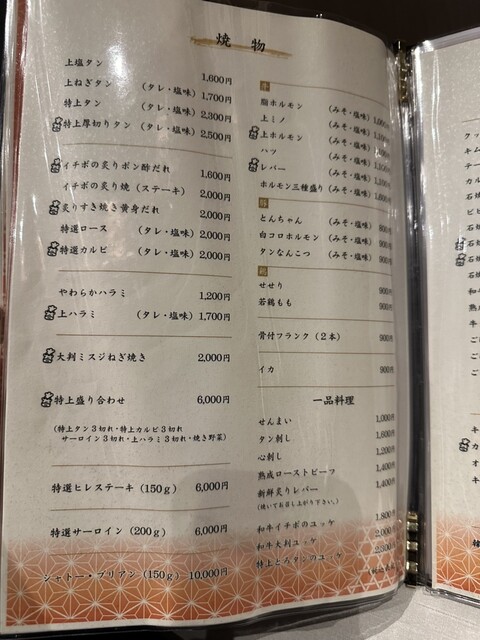 焼物
上塩タン 1,600円
上ねぎタン (タレ・塩味) 1,700円
特上タン (タレ・塩味) 2,300円
特上厚切りタン (タレ・塩味) 2,500円
イチボの炙りポン酢だれ 1,600円
イチボの炙り焼 (ステーキ) 2,000円
炙りすき焼き黄身だれ 2,000円
特選ロース (タレ・塩味) 2,000円
特選カルビ (タレ・塩味) 2,000円
やわらかハラミ 1,200円
上ハラミ (タレ・塩味) 1,700円
大判ミスジねぎ焼き 2,000円
特上盛り合わせ 6,000円
(特上タン3切れ・特上カルビ3切れ
サーロイン3切れ・上ハラミ3切れ・焼き野菜)
特選ヒレステーキ (150g) 6,000円
特選サーロイン (200g) 6,000円
シャトー・ブリアン (150g) 10,000円
牛
脂ホルモン (みそ・塩味)
上ミノ (みそ・塩味)
上ホルモン (みそ・塩味)
ハツ (みそ・塩味)
レバー (みそ・塩味)
ホルモン三種盛り (みそ・塩味)
豚
とんちゃん (みそ・塩味) 800円
白コロホルモン (みそ・塩味) 900円
タンなんこつ (みそ・塩味) 900円
せせり 900円
若鶏もも 900円
骨付フランク (2本) 900円
イカ 900円
一品料理
せんまい 1,000円
タン刺し 1,600円
心刺し 1,200円
熟成ローストビーフ 1,400円
新鮮炙りレバー 1,400円
(焼いてお召し上がり下さい。)
和牛イチボのユッケ 1,800円
和牛大判ユッケ 2,000円
特上とろタンのユッケ 2,300円